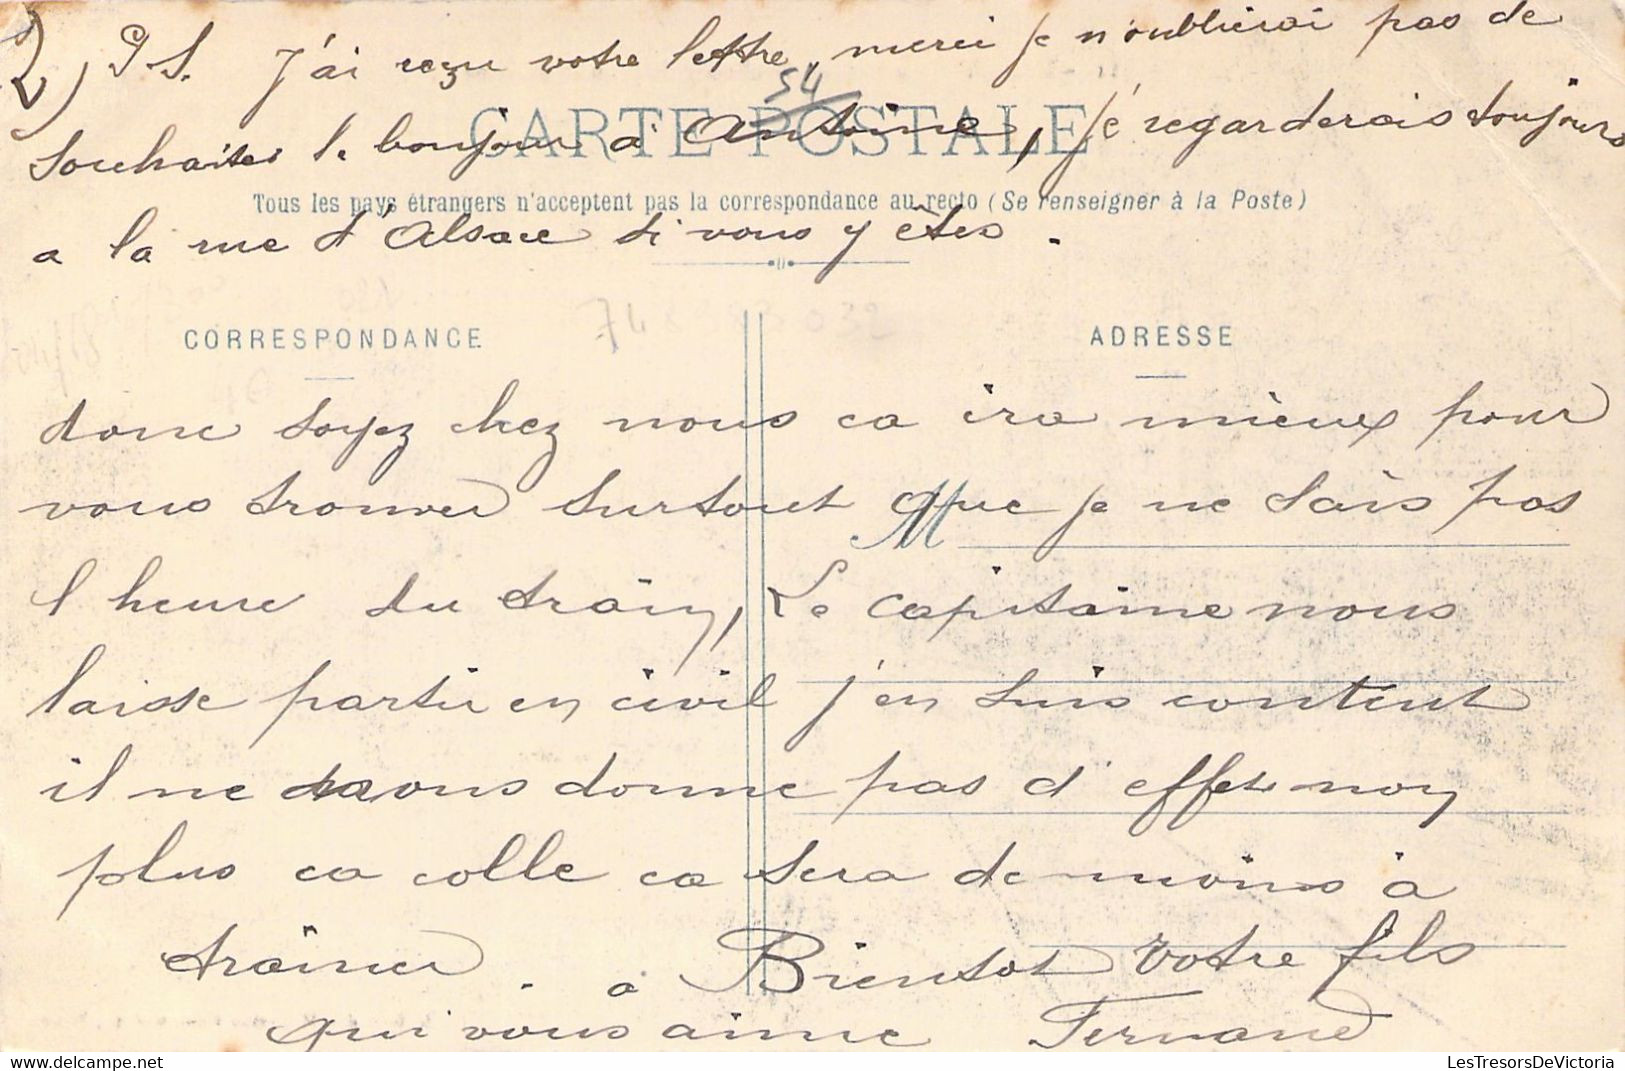 2) P.S. J'ai reçu votre lettre, merci je n'oublierai pas de
54
CARTE POSTALE
souhaiter le bonjour a Antoine, je regarderais toujours
Tous les pays étrangers n'acceptent pas la correspondance au recto (Se renseigner à la Poste)
a la rue d'Alsace si vous y êtes.
CORRESPONDANCE
ADRESSE
donc soyez chez nous ca ira mieux pour
vous trouver surtout que je ne sais pas
M
l heure du train, Le capitaine nous
laisse partir en civil j'en suis content
il ne nous donne pas d'effets non
plus ca colle ca sera de moins à
traîner. a Bientot votre fils
qui vous aime Fernand
LesTresorsDeVictoria